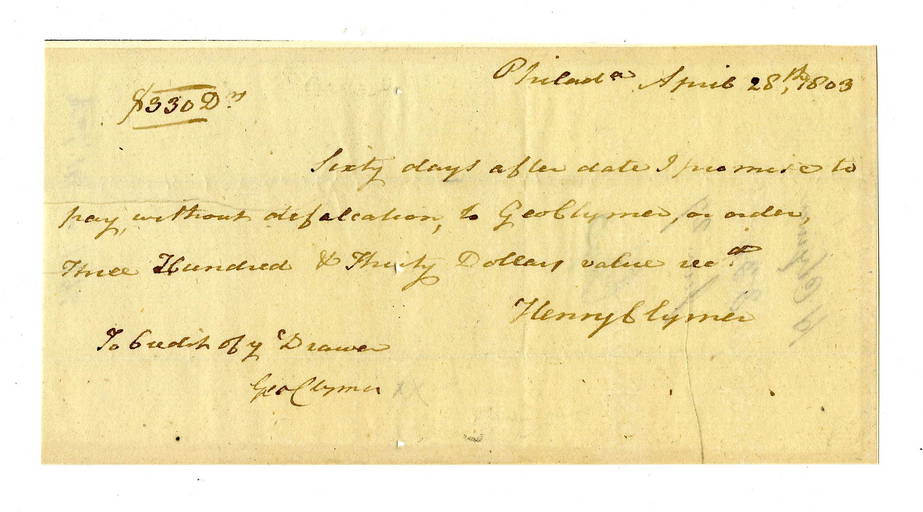 Philada April 28th, 1803
$330 Drs
Sixty days after date I promise to
pay, without defalcation, to Geo Clymer, or order,
Three Hundred & Thirty Dollars value recd
Henry Clymer
To Credit of ye Drawer
Geo Clymer